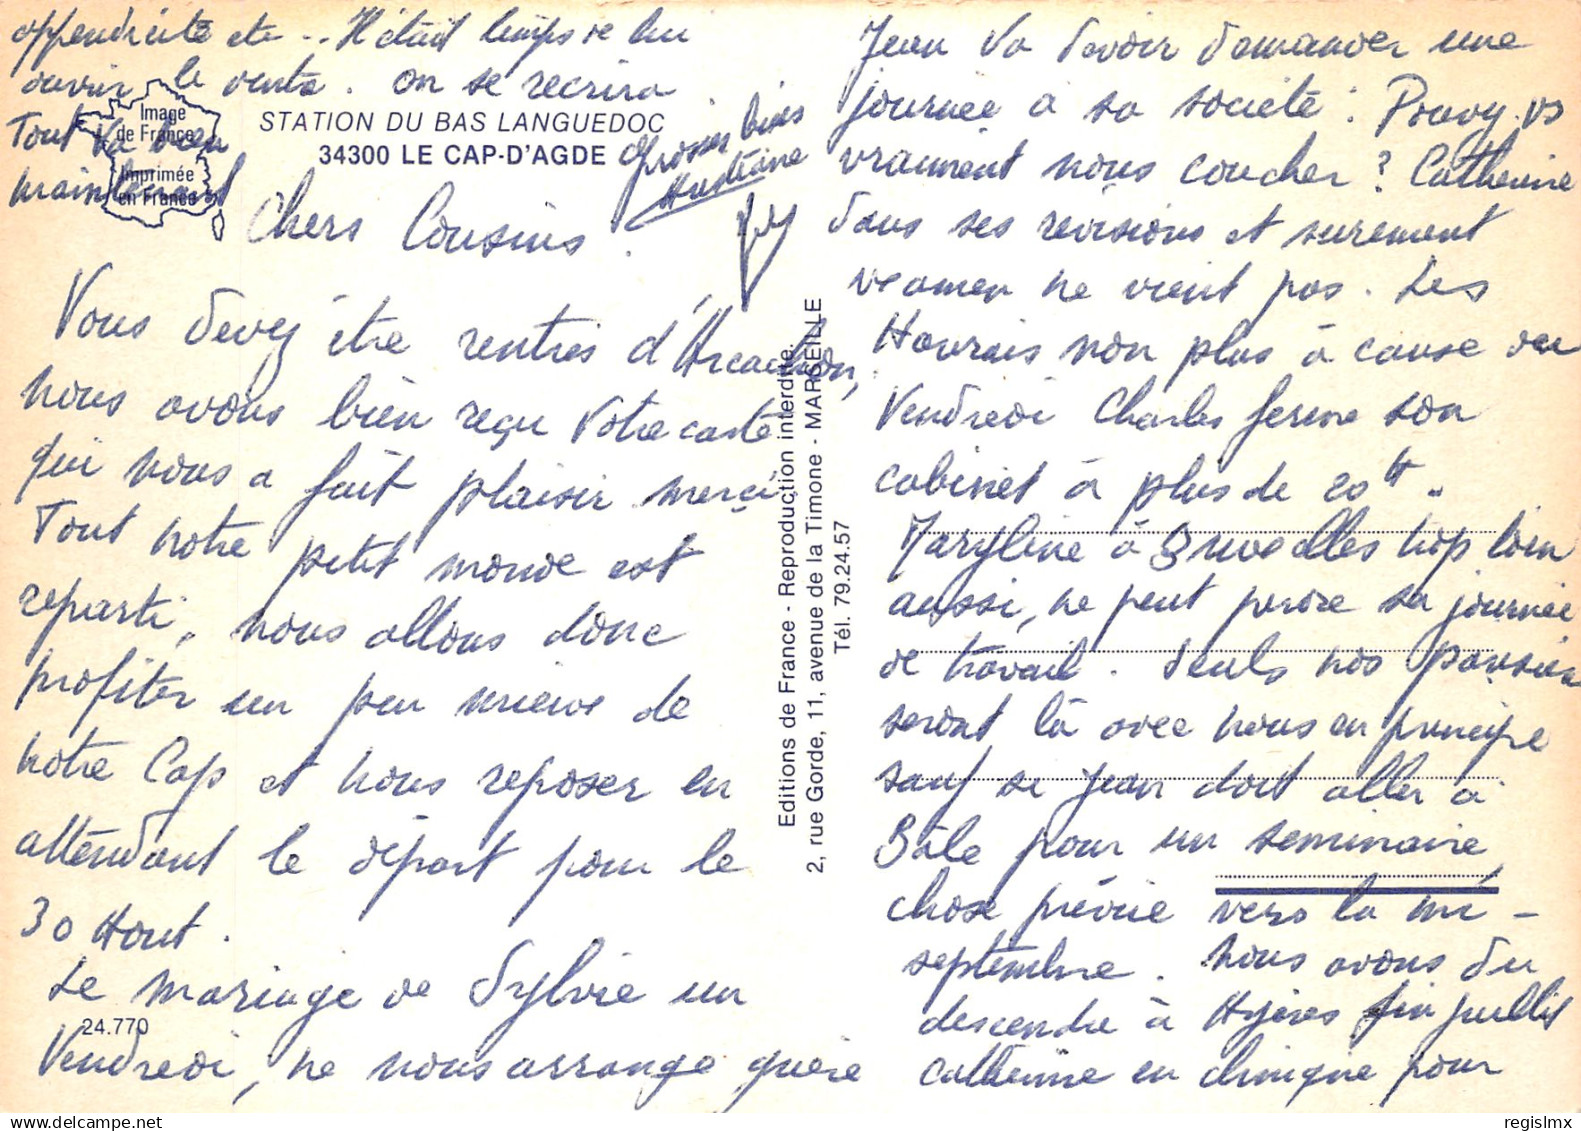 Image
de France
Imprimée
en France
STATION DU BAS LANGUEDOC
34300 LE CAP-D'AGDE
Chers Cousins.
Vous devez être rentrés d'Arcachon,
nous avons bien reçu votre carte
qui nous a fait plaisir merci
Tout notre petit monde est
reparti, nous allons donc
profiter un peu mieux de
notre Cap et nous reposer en
attendant le départ pour le
30 Aout.
Le mariage de Sylvie un
Vendredi, ne nous arrange guère
24.770
Editions de France - Reproduction interdite.
2, rue Gorde, 11, avenue de la Timone - MARSEILLE
Tél. 79.24.57
Jean va devoir demander une
journée à sa société : Pouvez vs
vraiment nous coucher ? Catherine
dans ses révisions et surement
ne vient pas. Les
Havrais non plus à cause du
Vendredi Charles ferme son
cabinet à plus de 20h.
Maryline à Bruxelles trop loin
aussi, ne peut perdre sa journée
de travail. Seuls nos
seront là avec nous en principe
sauf si Jean doit aller à
Bâle pour un seminaire,
chose prévue vers la mi-
septembre. Nous avons du
descendre à Hyères fin juillet
Catherine en clinique pour
appendicite etc... Il était temps de lui
ouvrir le ventre. On se recrira
Tout va bien
maintenant
Grosses bises